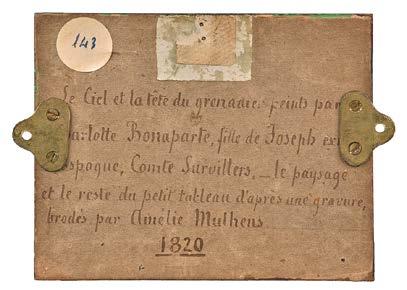 143
Le Ciel et la tête du grenadier peints par
Bonaparte, fille de Joseph ex
Comte Survilliers, — le paysage
et le reste du petit tableau d'après une gravure,
brodés par Amélie Mulhens
1820